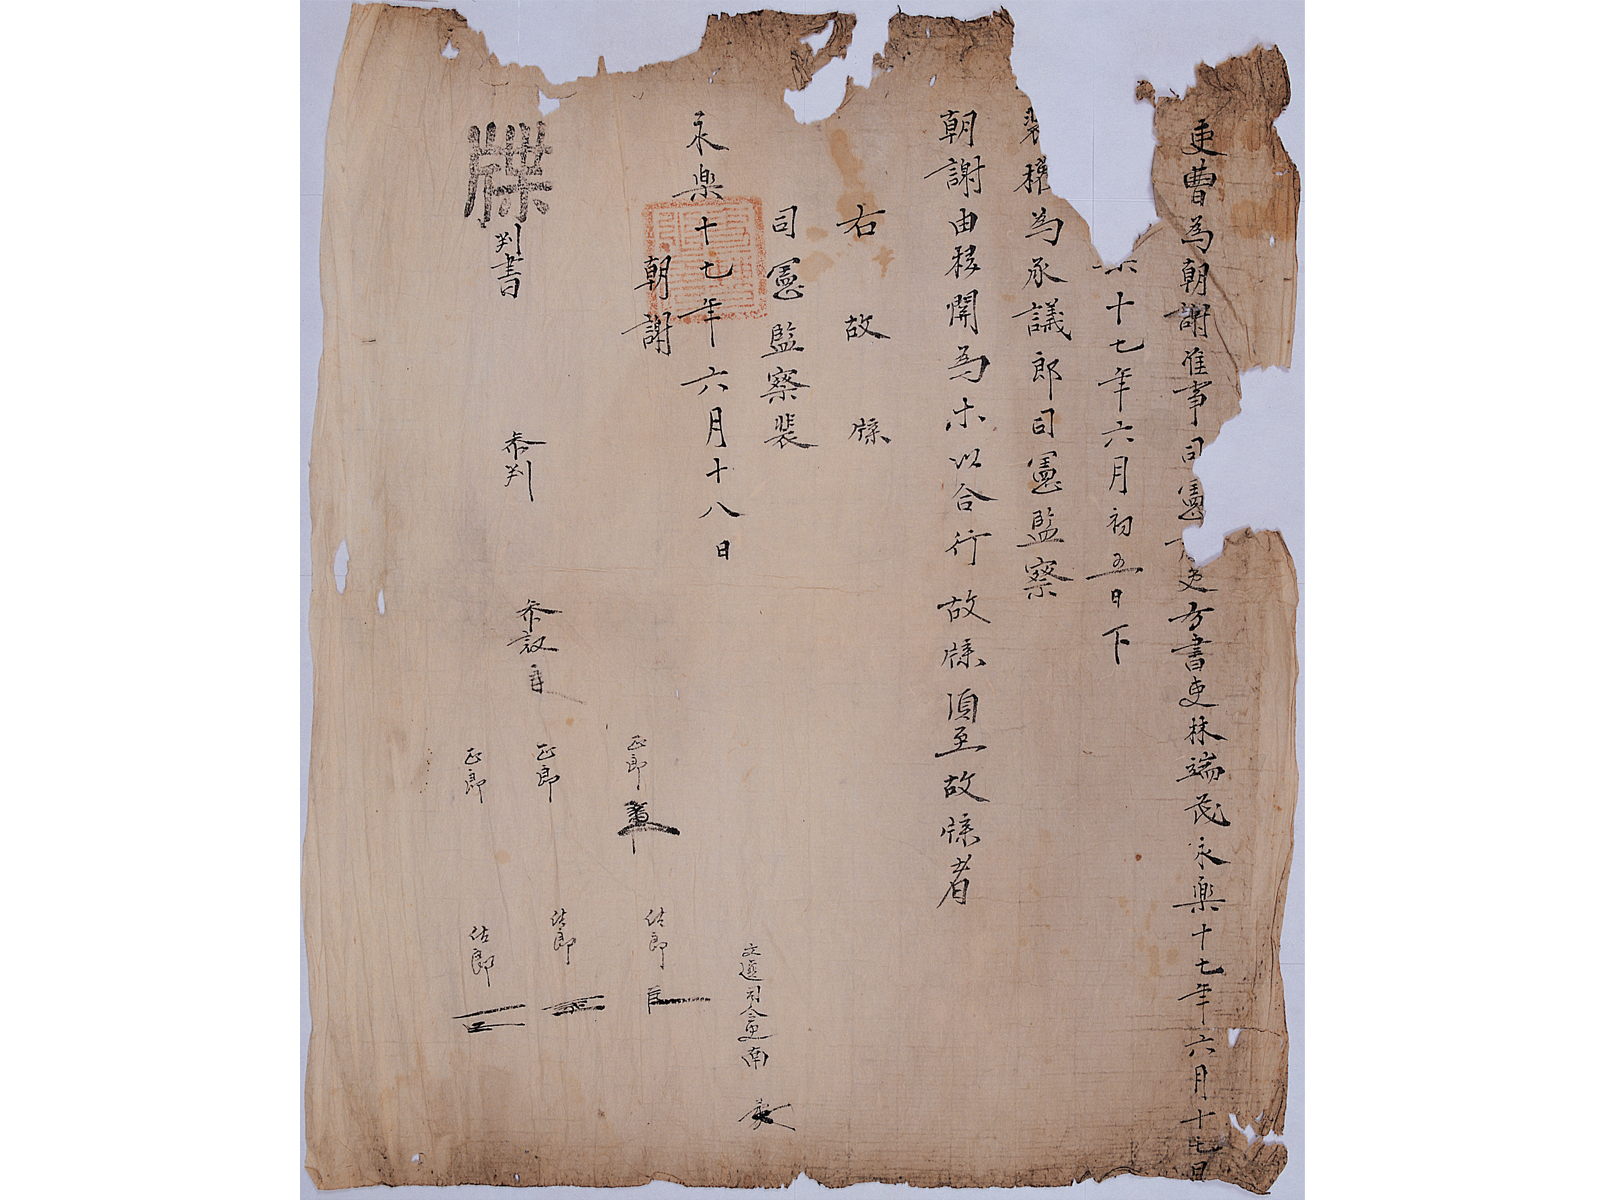 吏曹為朝謝准事司憲吏房書吏林端茂永樂十七年六月十七日
十七年六月初五日下
裴權為承議郎司憲監察
朝謝由移關為等以合行故牒須至故牒者
右故牒
司憲監察裴
永樂十七年六月十八日
朝謝
牒
判書
參判
參議
正郎
正郎
正郎
佐郎
佐郎
佐郎
文選司令史南